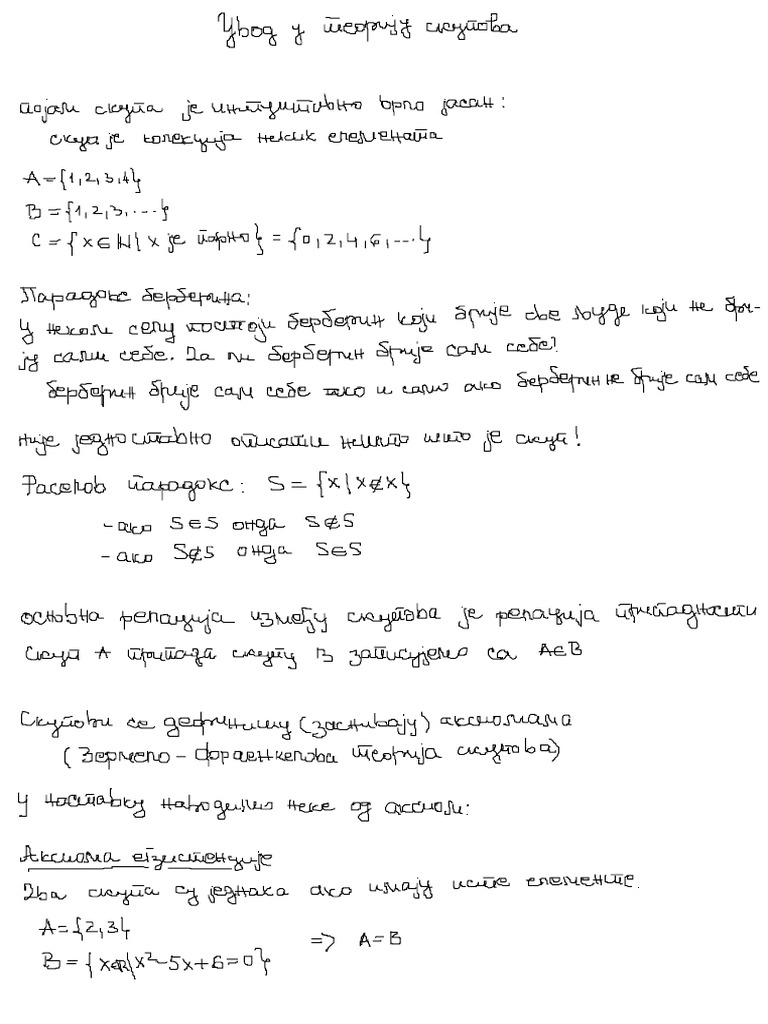 Увод у теорију скупова
појам скупа је интуитивно врло јасан:
скуп је колекција неких елемената
A={1,2,3,4}
B={1,2,3,....}
C={x∈ℕ| x је парно}={0,2,4,6,...}
Парадокс берберина:
У неком селу постоји берберин који брије све људе који не бри-
ју сами себе. Да ли берберин брије сам себе?
берберин брије сам себе ако и само ако берберин не брије сам себе
није једноставно описати нешто што је скуп!
Раселов парадокс: S={x|x∉x}
-ако S∈S онда S∉S
-ако S∉S онда S∈S
основна релација између скупова је релација припадности
скуп A припада скупу B записујемо са A∈B
Скупови се дефинишу (заснивају) аксиомама
(Зермело-Фраенкелова теорија скупова)
У наставку наводимо неке од аксиома:
Аксиома егзистенције
Два скупа су једнака ако имају исте елементе.
A={2,3}
B={x∈ℝ|x²-5x+6=0} => A=B